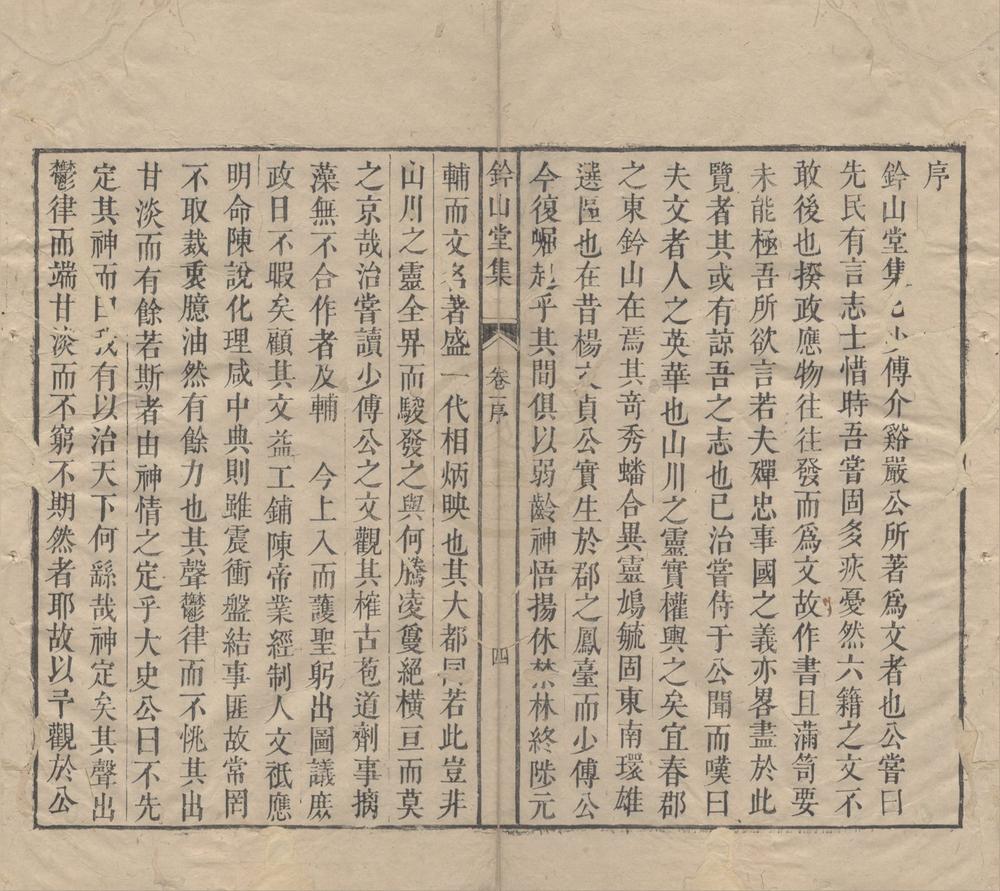 序
鈐山堂集 傅介谿嚴公所著爲文者也公嘗曰
先民有言志士惜時吾嘗固多疢憂然六籍之文不
敢後也揆政應物往往發而爲文故作書且滿笥要
未能極吾所欲言若夫殫忠事國之義亦畧盡於此
覽者其或有諒吾之志也已治嘗侍于公聞而嘆曰
夫文者人之英華也山川之靈實權輿之矣宜春郡
之東鈐山在焉其竒秀蟠合異靈鳩毓固東南環雄
選區也在昔楊 貞公實生於郡之鳳臺而少傅公
今復崛起乎其間俱以弱齡神悟揚休 林終陟元
鈐山堂集 卷一序 四
輔而文名著盛一代相炳映也其大都 若此豈非
山川之靈全畀而駿發之與何騰凌敻絕橫亘而莫
之京哉治嘗讀少傅公之文觀其榷古苞道劑事摛
藻無不合作者及輔 今上入而䕶聖躬出圖議庶
政日不暇矣顧其文益工鋪陳帝業經制人文祗應
明命陳說化理咸中典則雖震衝盤結事匪故常罔
不取裁衷臆油然有餘力也其聲鬱律而不恌其出
甘淡而有餘若斯者由神情之定乎大史公曰不先
定其神而曰我有以治天下何繇哉神定矣其聲出
鬱律而端甘淡而不窮不期然者耶故以予觀於公